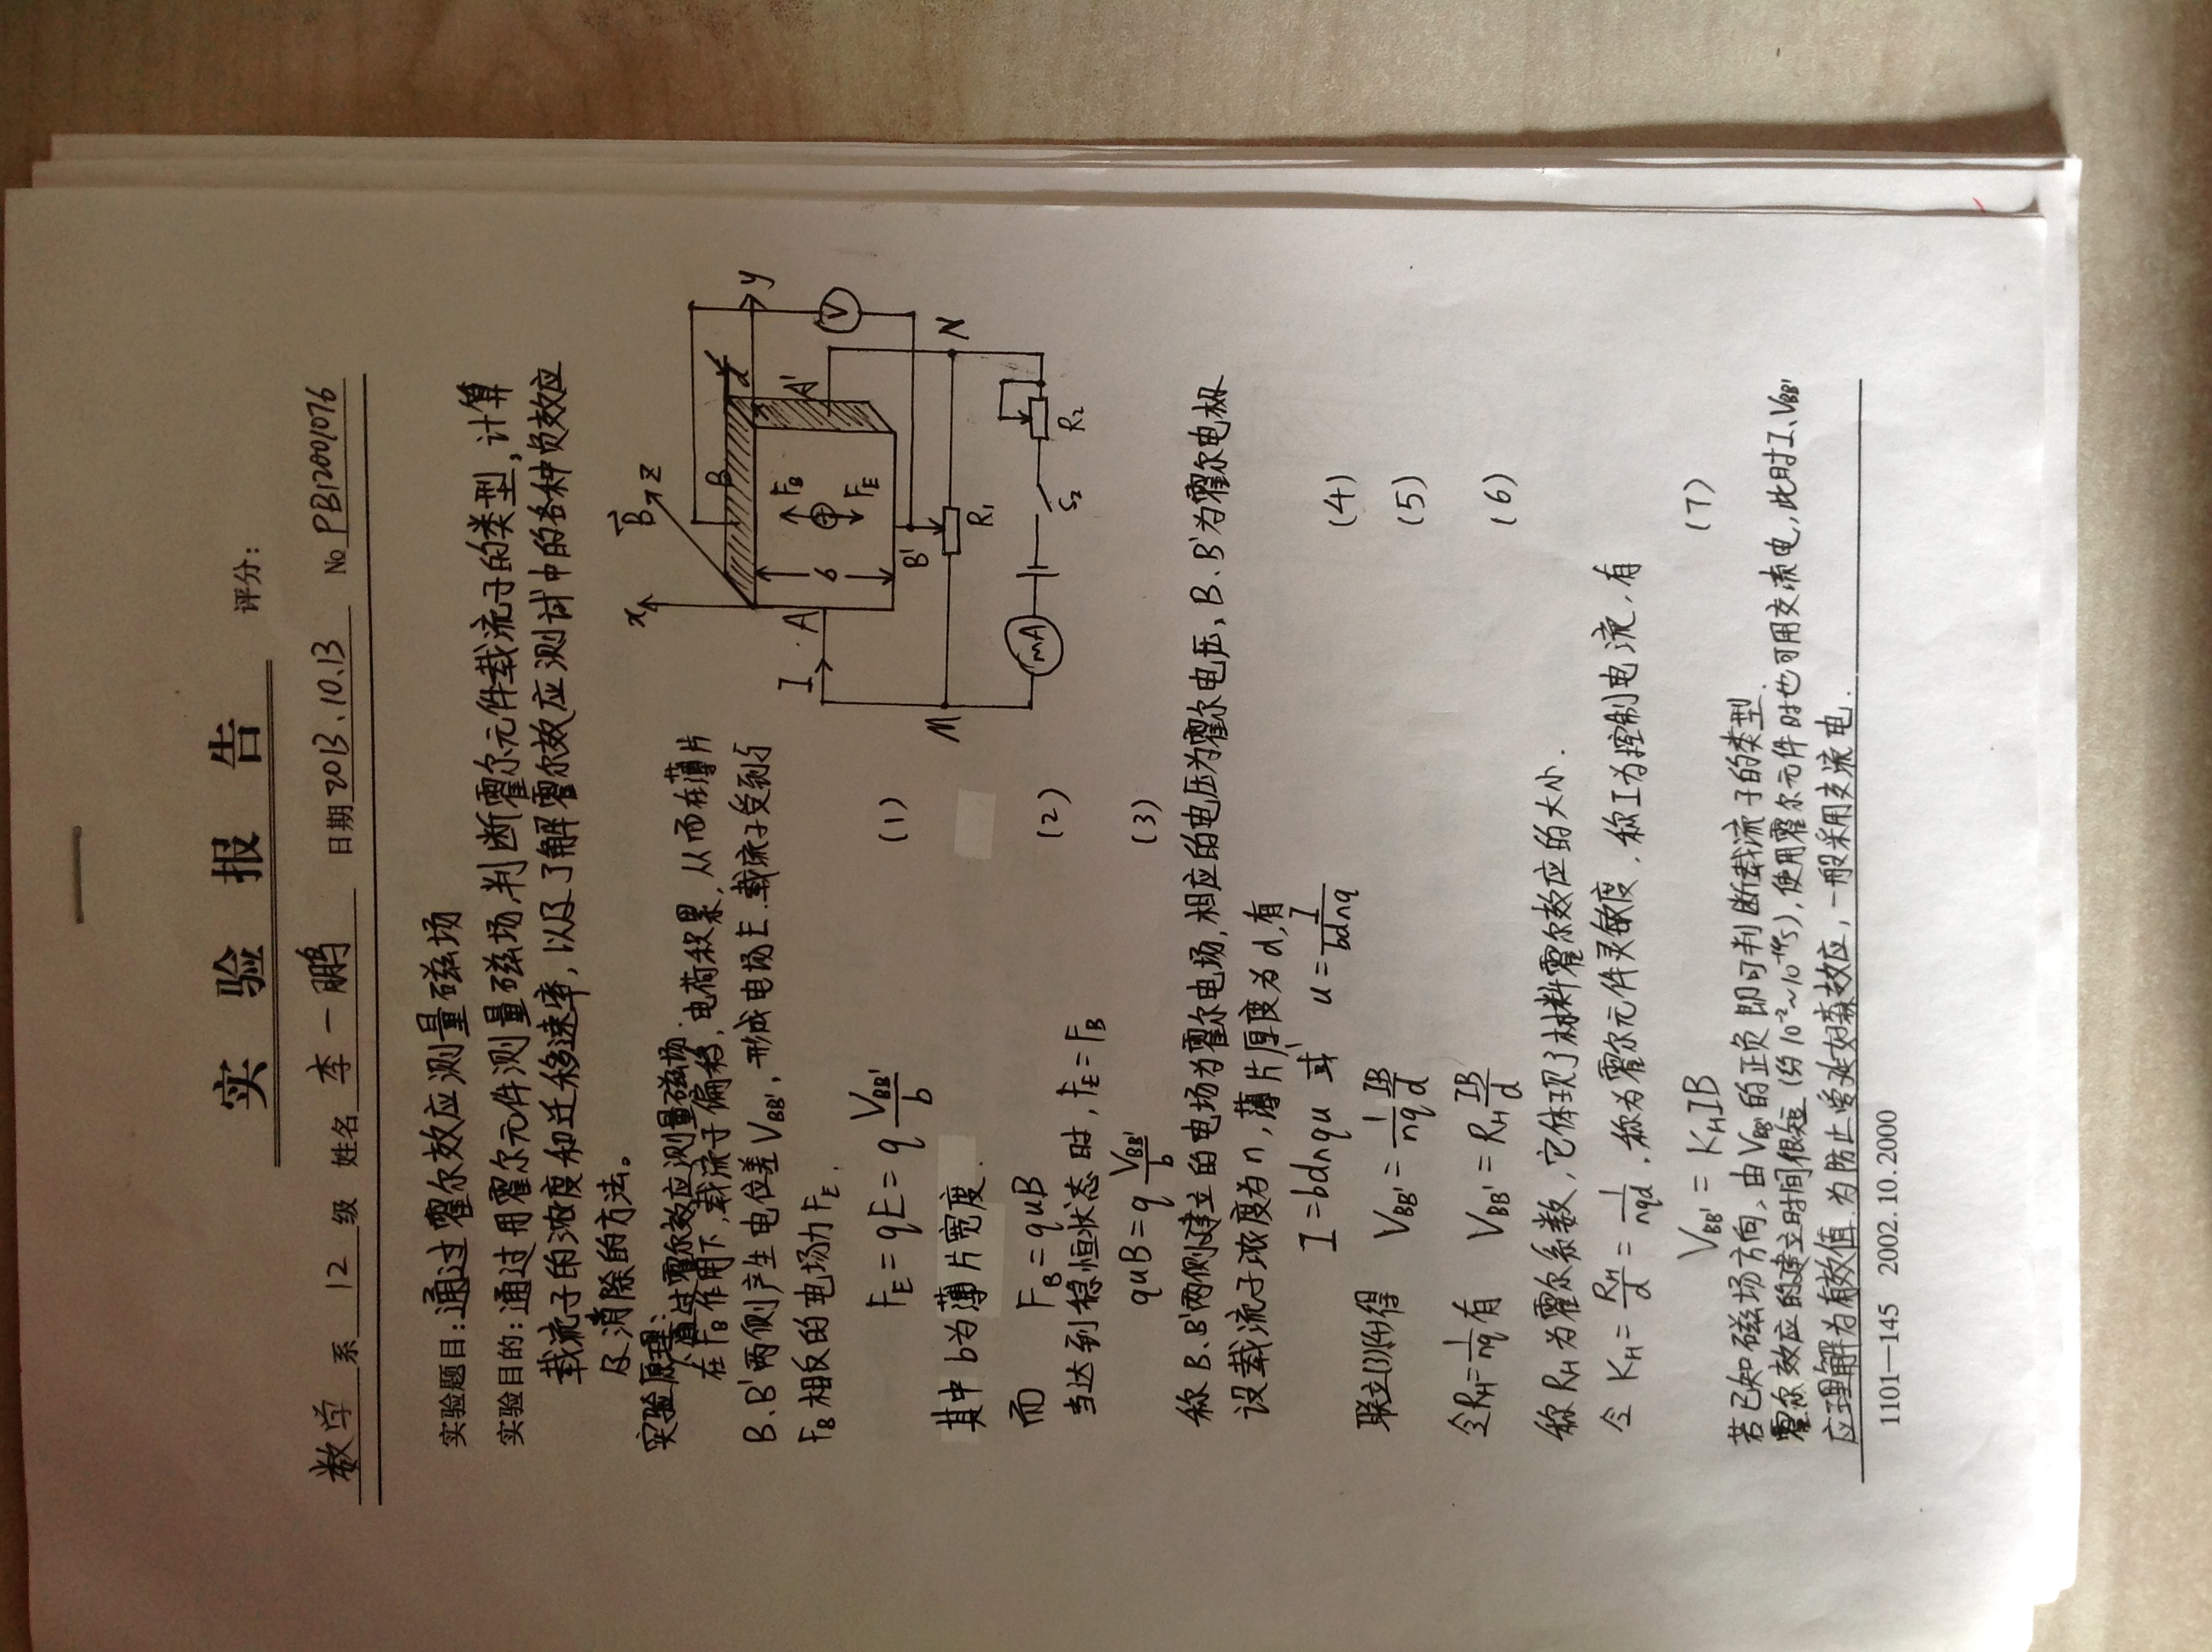 实验报告 评分:
数学 系 12 级 姓名 李一鹏 日期 2013.10.13 No PB12001076
实验题目:通过霍尔效应测量磁场
实验目的:通过用霍尔元件测量磁场,判断霍尔元件载流子的类型,计算
载流子的浓度和迁移速率,以及了解霍尔效应测试中的各种负效应
及消除的方法。
实验原理:
1.通过霍尔效应测量磁场.
在F_B作用下,载流子偏移,电荷积累,从而在薄片
B、B'两侧产生电位差V_BB',形成电场E.载流子受到与
F_B相反的电场力F_E.
F_E = qE = q V_BB'/b (1)
其中b为薄片宽度.
而 F_B = quB (2)
当达到稳恒状态时,F_E = F_B
quB = q V_BB'/b (3)
x B⃗ z
B d
y
I A b F_B A'
F_E V
B'
M N
R₁
mA S₂ R₂
称B、B'两侧建立的电场为霍尔电场,相应的电压为霍尔电压,B、B'为霍尔电极
设载流子浓度为n,薄片厚度为d,有
I = bdnqu 或 u = I/bdnq (4)
联立(3)(4)得 V_BB' = 1/nq IB/d (5)
令R_H = 1/nq 有 V_BB' = R_H IB/d (6)
称R_H为霍尔系数,它体现了材料霍尔效应的大小.
令 K_H = R_H/d = 1/nqd,称为霍尔元件灵敏度,称I为控制电流,有
V_BB' = K_H IB (7)
若已知磁场方向,由V_BB'的正负即可判断载流子的类型.
霍尔效应的建立时间很短(约10⁻²~10⁻¹⁴s),使用霍尔元件时也可用交流电,此时I、V_BB'
应理解为有效值.为防止爱廷好森效应,一般采用交流电.
1101—145 2002.10.2000